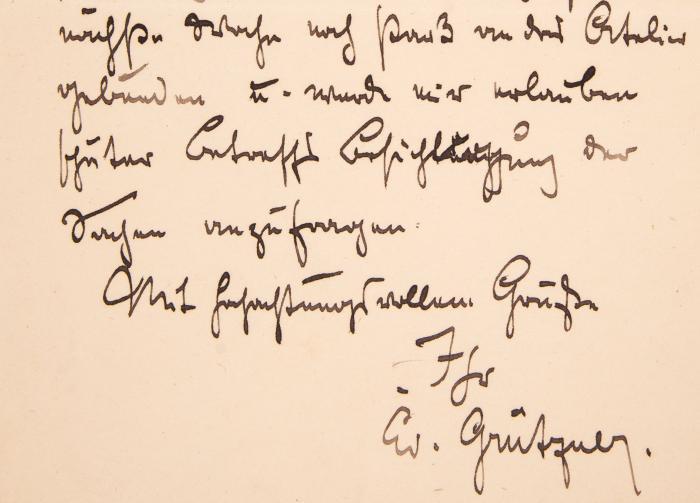 nächste Woche noch stark an das Atelier
gebunden u. werde mir erlauben
später betreffs Besichtigung der
Sachen anzufragen.
Mit hochachtungsvollem Gruße
Ihr
Ed. Grützner.